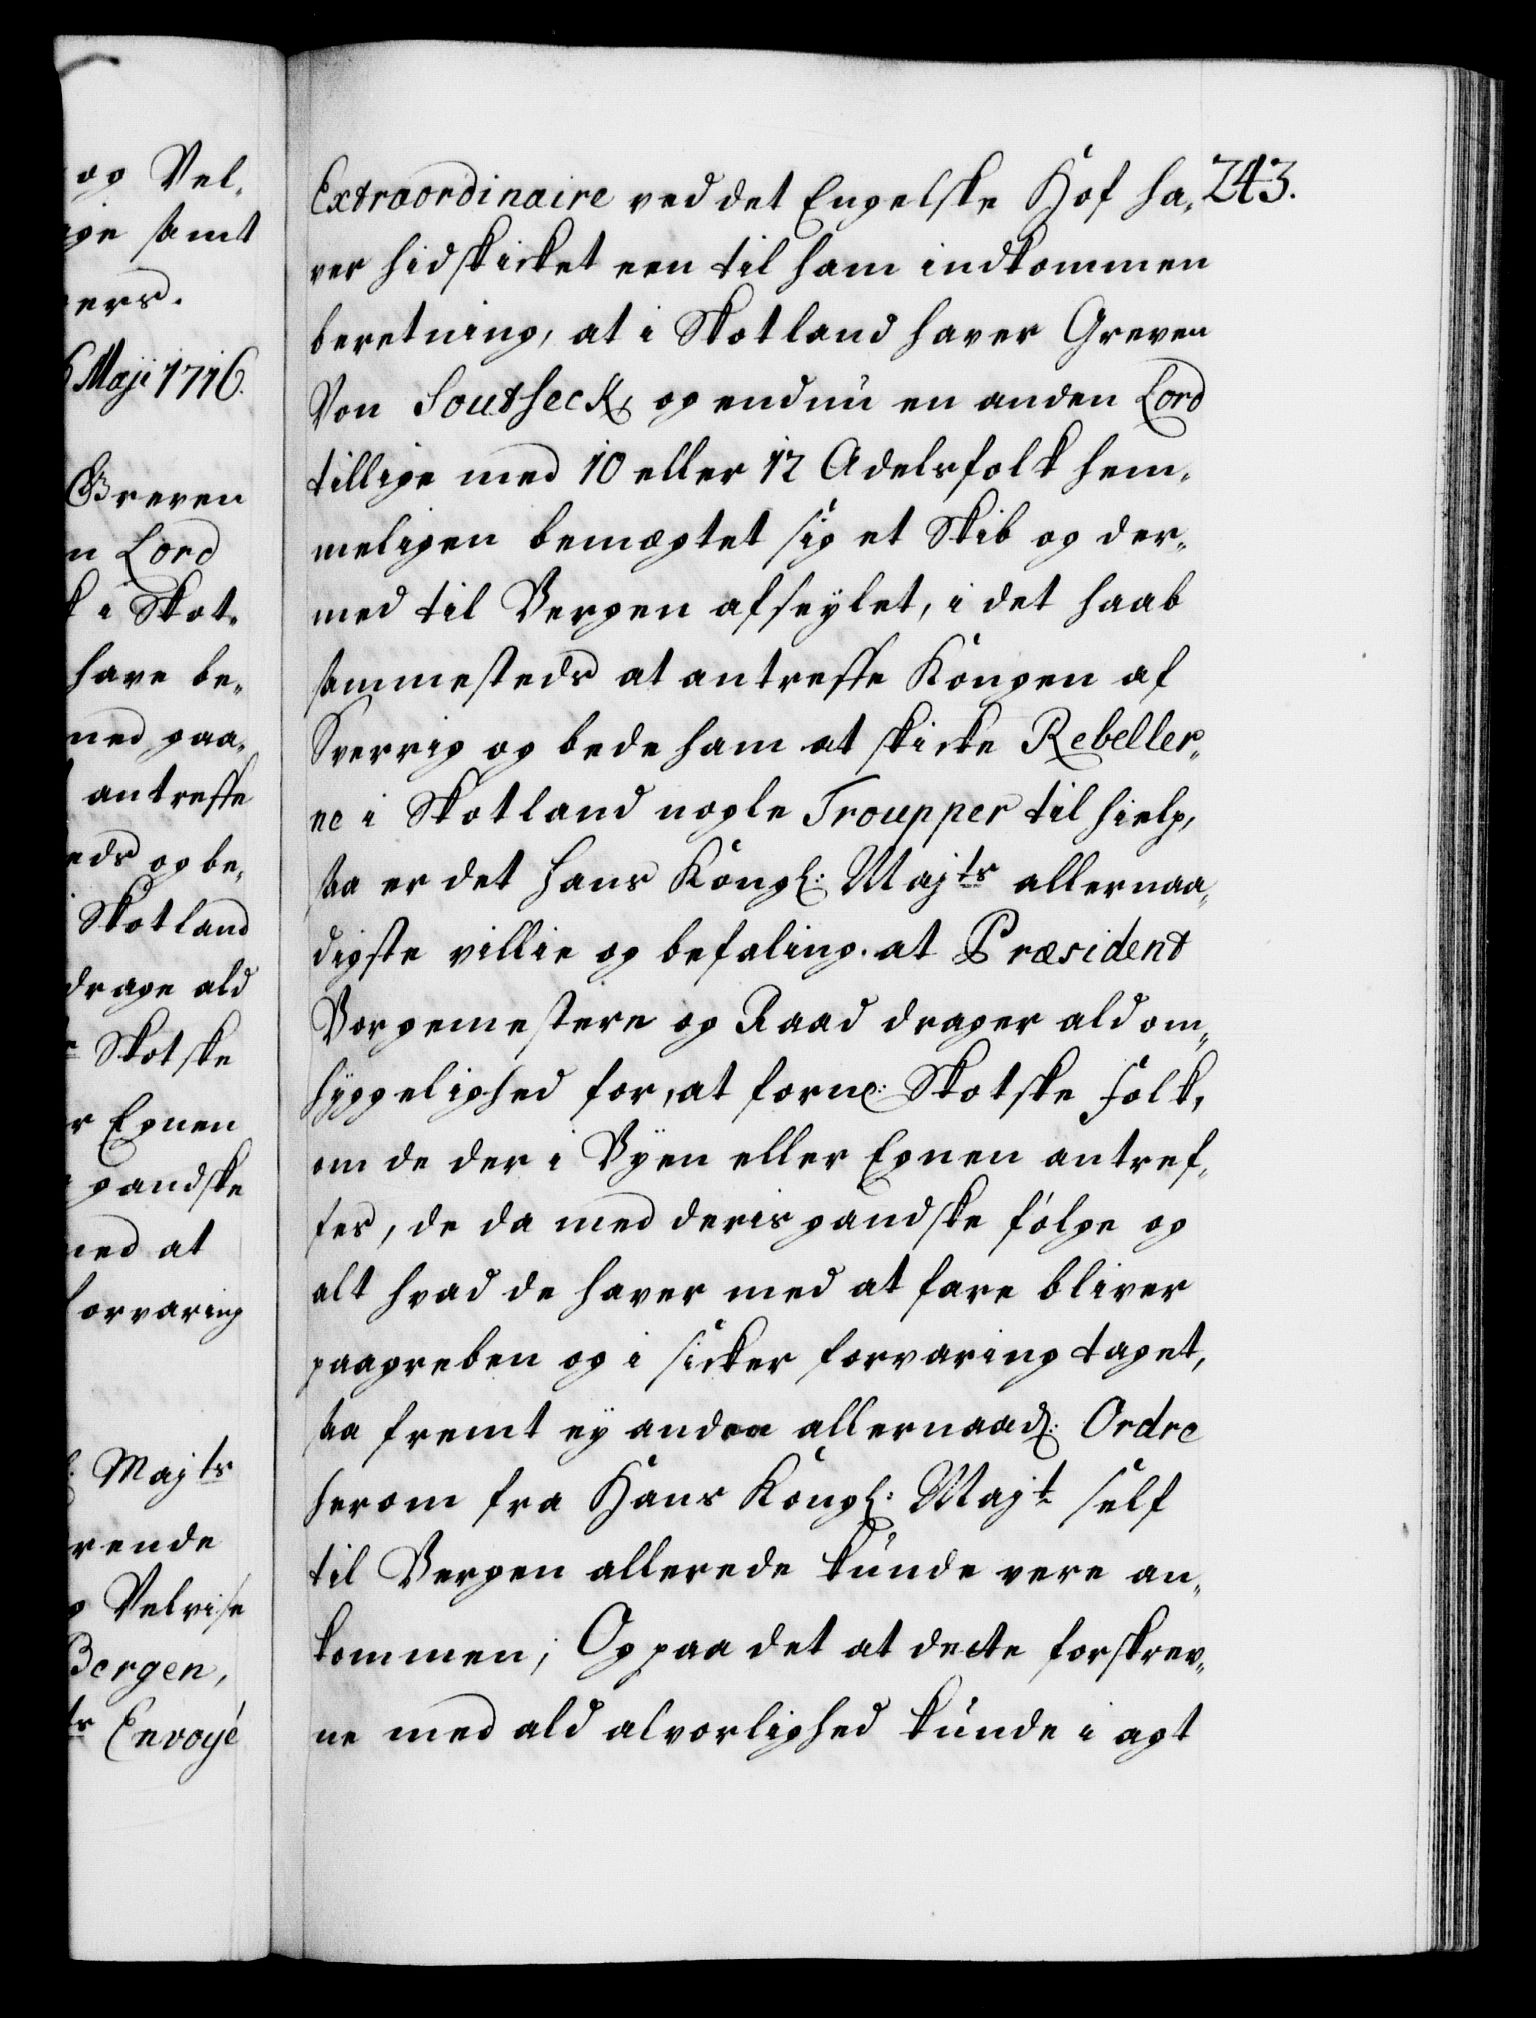 og Vel-
ige samt
ers.
6 Maji 1716.
Greven
n Lord
k i Skot-
have be-
med paa-
antreffe
eds og be-
Skotland
drage ald
Skotske
r Egnen
gandske
med at
forvaring
Majts
rende
Velvise
Bergen,
ts Envoyé
243.
Extraordinaire ved det Engelske Hof ha-
ver hidskicket een til ham indkommen
beretning, at i Skotland haver Greven
Von Southeck og endnu en anden Lord
tillige med 10 eller 12 Adelsfolk hem-
meligen bemægtet sig et Skib og der-
med til Bergen afseylet, i det haab
sammesteds at antreffe Kongen af
Sverrig og bede ham at skicke Rebeller-
ne i Skotland nogle Troupper til hielp,
saa er det Hans Kongl: Majts allernaa-
digste villie og befaling. at Præsident
Borgemestere og Raad drager ald om-
hyggelighed for, at forne: Skotske folk,
om de der i Byen eller Egnen antref-
fes, de da med deris gandske følge og
alt hvad de haver med at fare bliver
paagreben og i sicker forvaring taget,
saa fremt ey anden allernaad: Ordre
herom fra Hans Kongl: Majt self
til Bergen allerede kunde vere an-
kommen; Og paa det at dette forskrev-
ne med ald alvorlighed kunde i agt